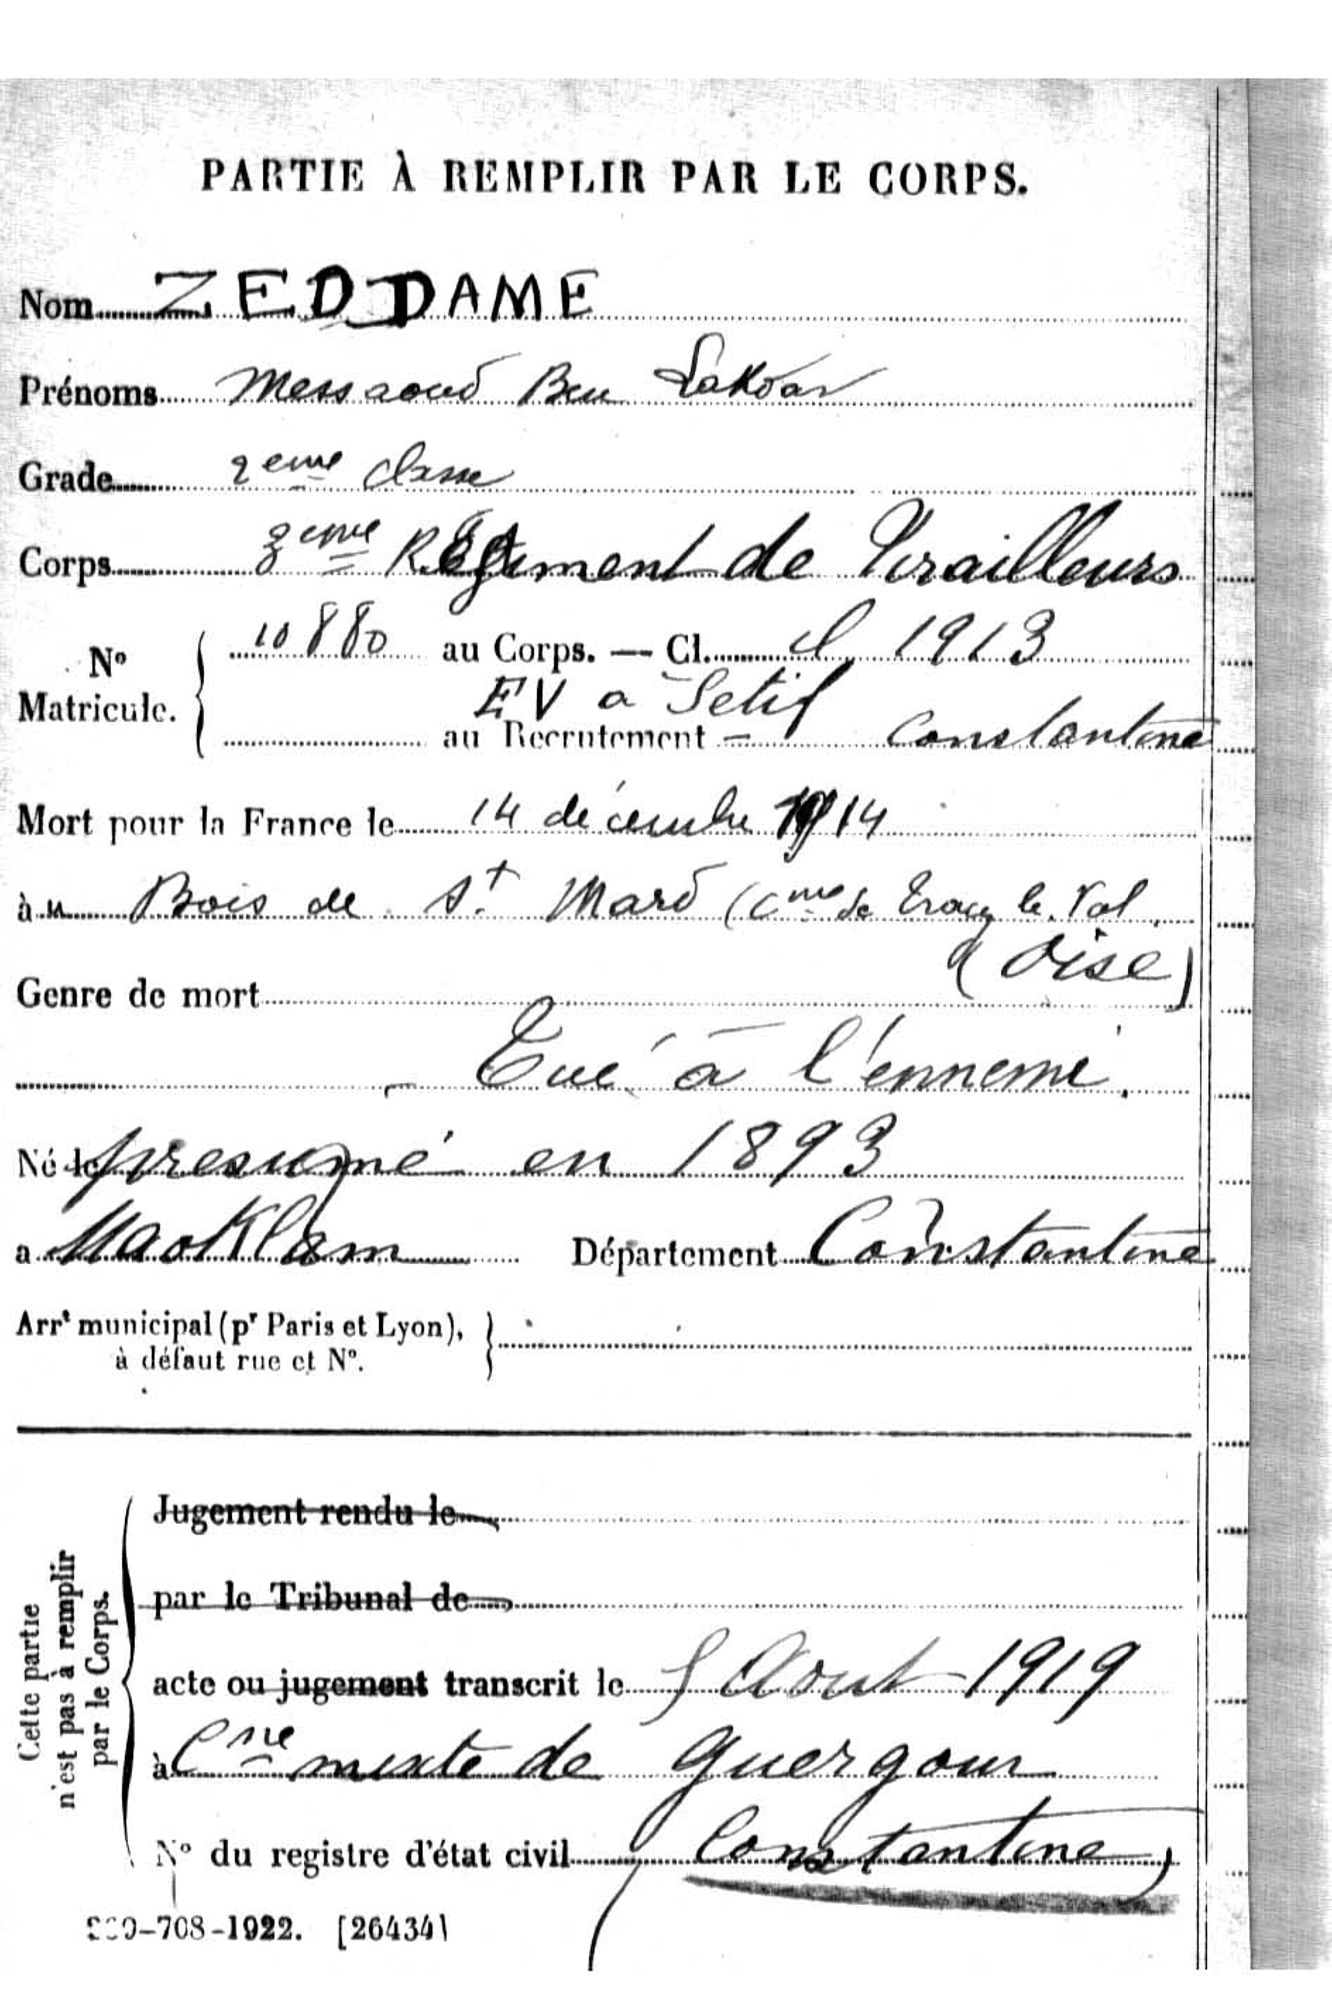 PARTIE À REMPLIR PAR LE CORPS.
Nom ZEDDAME
Prénoms Messaoud Ben Lakdar
Grade 2eme classe
Corps 3eme Régiment de Tirailleurs
N° Matricule. 10880 au Corps. — Cl. cl 1913
EV a Setif
au Recrutement - Constantine
Mort pour la France le 14 décembre 1914
à u Bois de St Mard (Cme de Tracy le Val
(Oise)
Genre de mort
Tué à l'ennemi.
Né le presumé en 1893
a Maoklam Département Constantine
Arrt municipal (pr Paris et Lyon),
à défaut rue et N°.
Cette partie n'est pas à remplir par le Corps.
Jugement rendu le
par le Tribunal de
acte ou jugement transcrit le 5 Aout 1919
à Cne mixte de Guergour
N° du registre d'état civil (Constantine)
-708-1922. [26434]